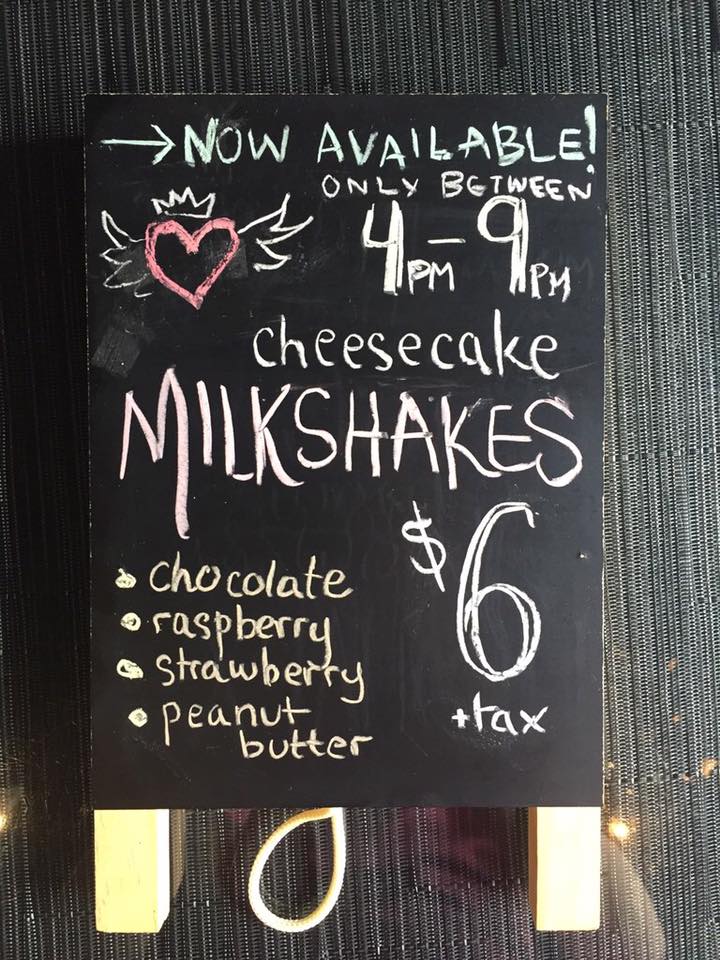 →NOW AVAILABLE!
ONLY BETWEEN
4PM - 9PM
cheesecake
MILKSHAKES
$6
+tax
• chocolate
• raspberry
• strawberry
• peanut
butter